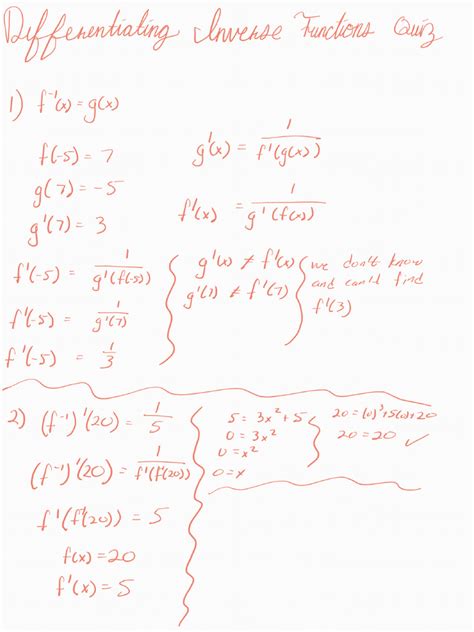 Differentiating Inverse Functions Quiz
1) f⁻¹(x) = g(x)
f(-5) = 7
g(7) = -5
g'(7) = 3
g'(x) = 1/f'(g(x))
f'(x) = 1/g'(f(x))
f'(-5) = 1/g'(f(-5))
f'(-5) = 1/g'(7)
f'(-5) = 1/3
g'(x) ≠ f'(x)
g'(7) ≠ f'(7)
we don't know
and can't find
f'(3)
2) (f⁻¹)'(20) = 1/5
(f⁻¹)'(20) = 1/f'(f⁻¹(20))
f'(f⁻¹(20)) = 5
f(x) = 20
f'(x) = 5
5 = 3x² + 5
0 = 3x²
0 = x²
0 = x
20 = (0)³ + 5(0) + 20
20 = 20 ✓